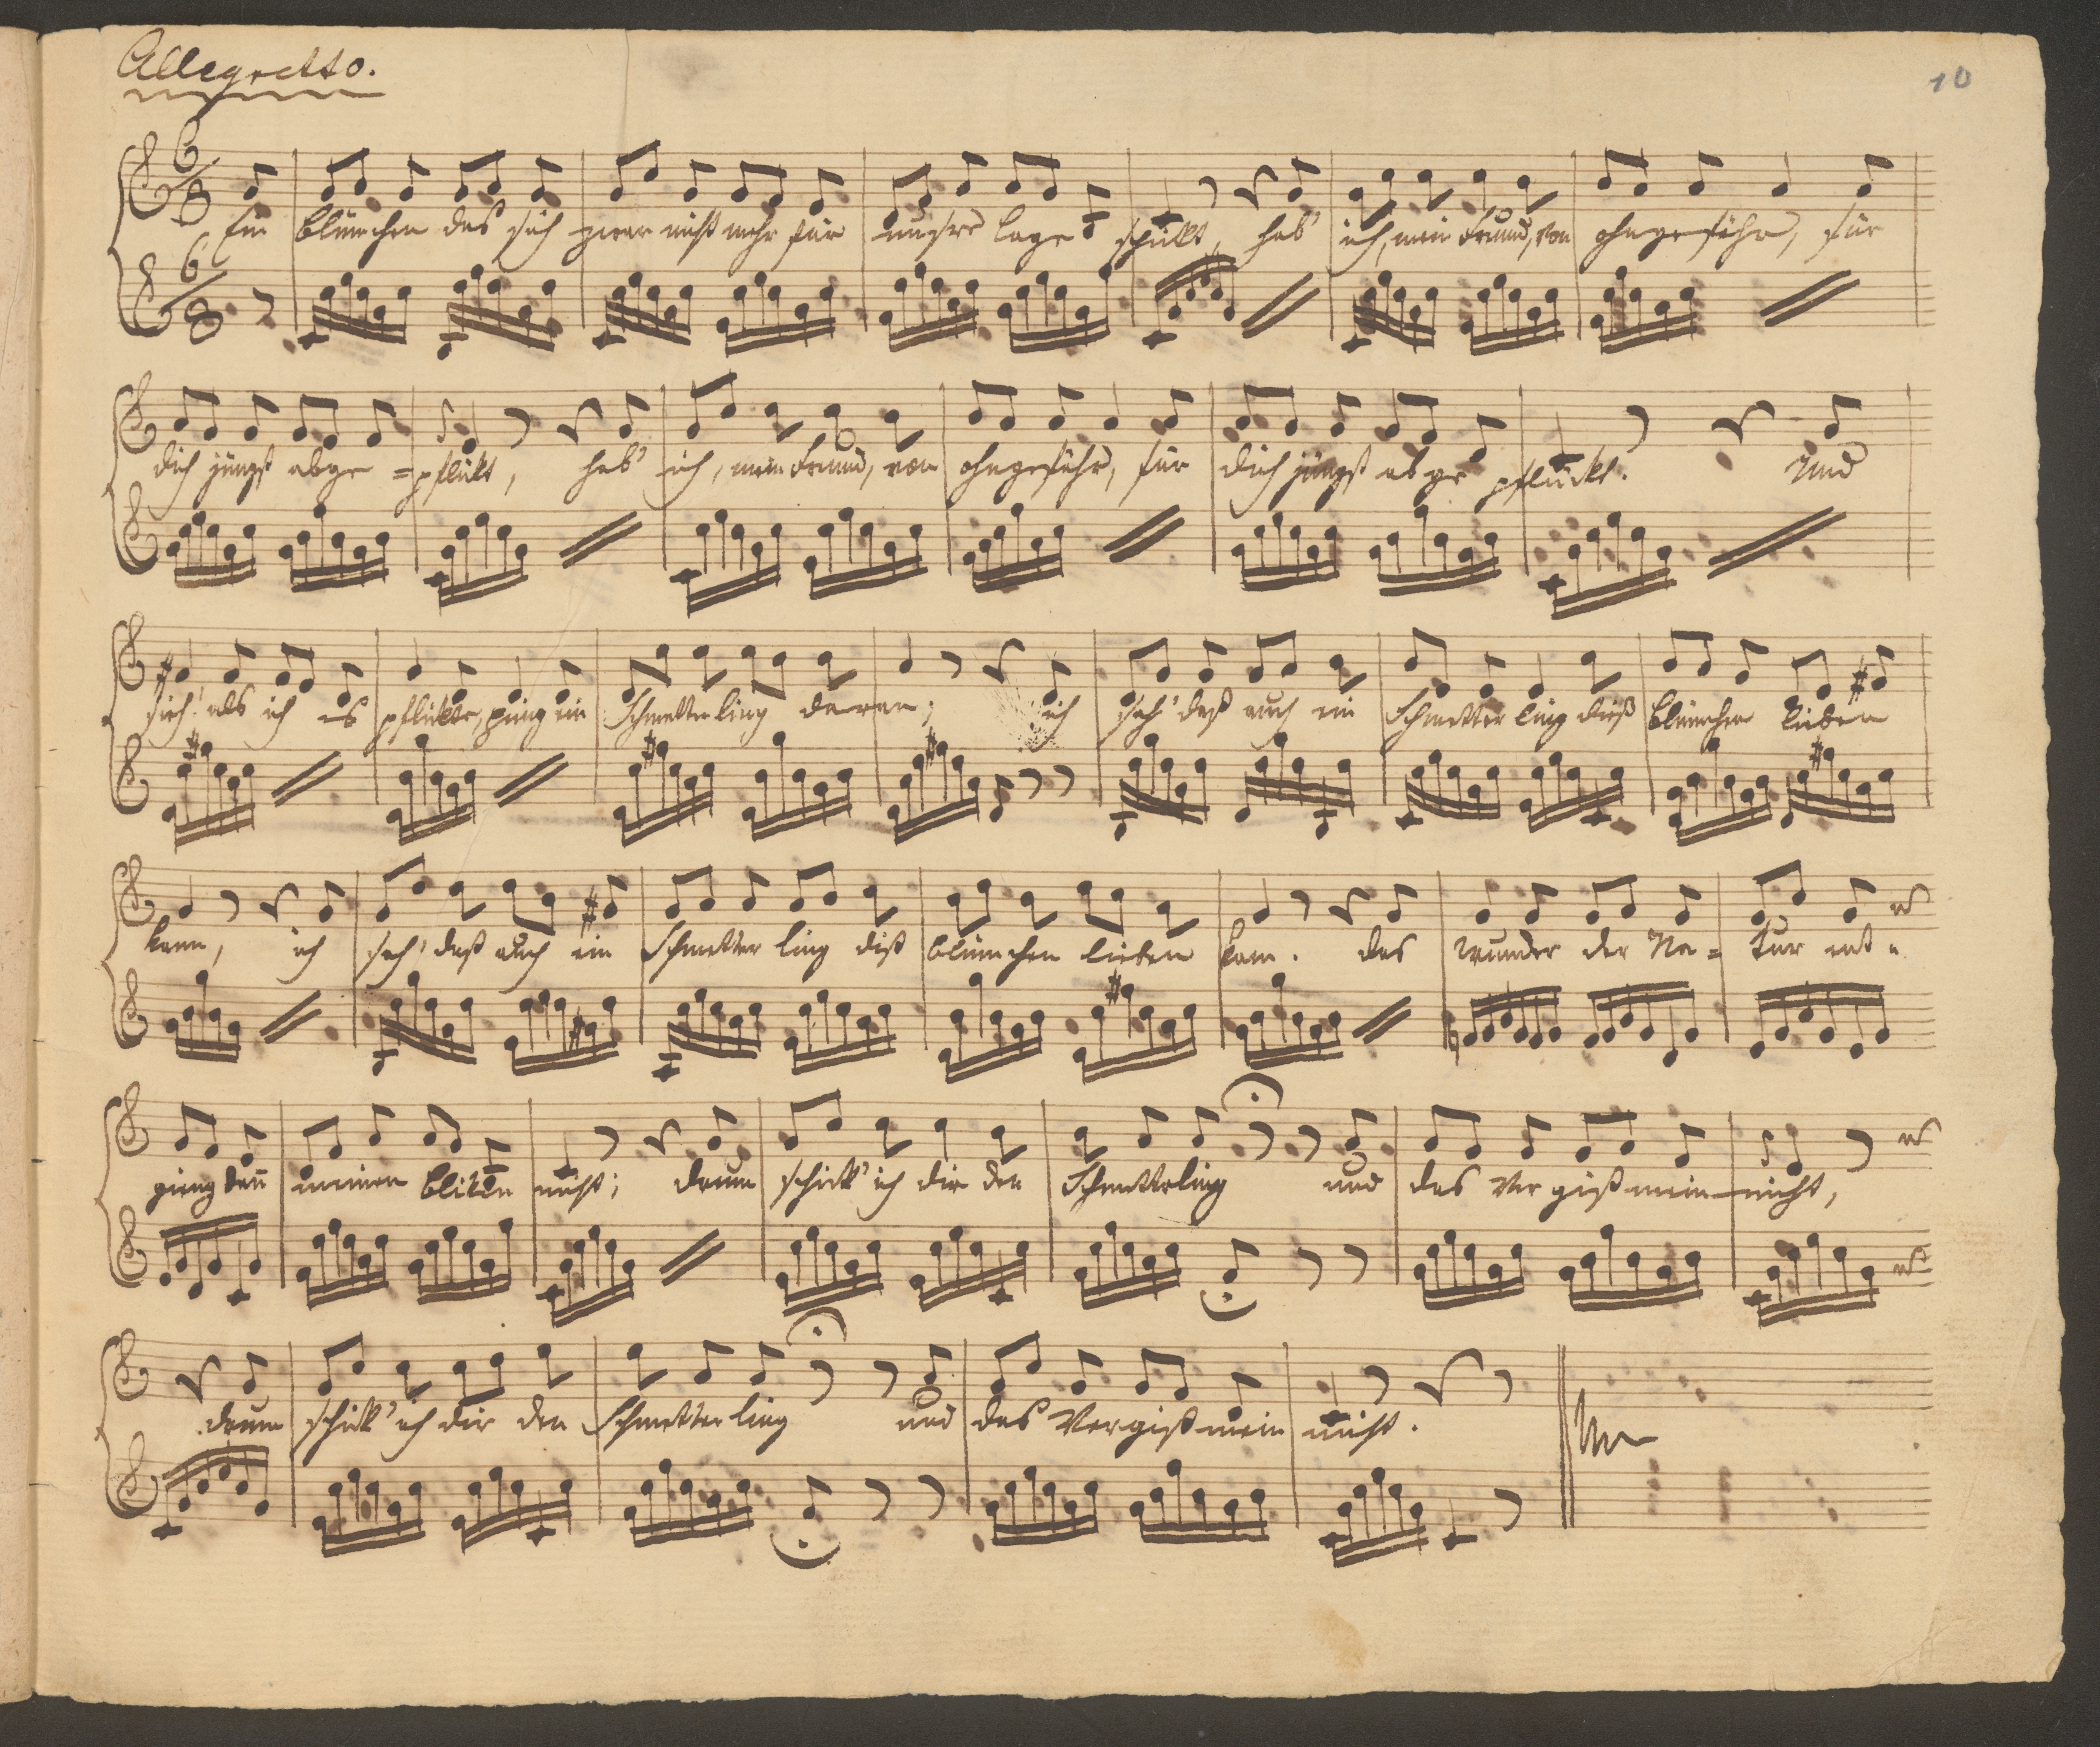 Allegretto.
10
6/8 Ein blümchen das sich zwar nicht mehr für unsre lage schikt, hab' ich, mein freund, von ohngefähr, für
6/8
dich jüngst abge=pflükt, hab' ich, mein freund, von ohngefähr, für dich jüngst abge pflückt. Und
sieh! als ich es pflükte, ging ein Schmetterling daran; ich sah' daß auch ein Schmetterling dieß blümchen lieben
kann, ich sah' daß auch ein Schmetterling diß blümchen lieben kann. das wunder der Na=tur ent=
ging dañ meinen bliken nicht; drum schick' ich dir den Schmetterling und das Vergißmein-nicht,
drum schick' ich dir den Schmetterling und das Vergißmein nicht.